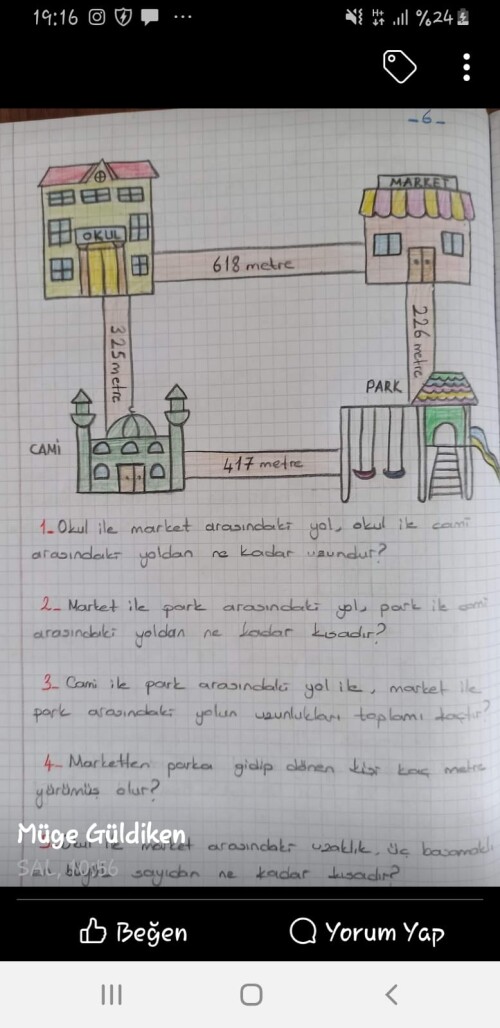 19:16
H+
%24
-6-
MARKET
OKUL
618 metre
325 metre
226 metre
PARK
CAMİ
417 metre
1- Okul ile market arasındaki yol, okul ile cami
arasındaki yoldan ne kadar uzundur?
2- Market ile park arasındaki yol, park ile cami
arasındaki yoldan ne kadar kısadır?
3- Cami ile park arasındaki yol ile, market ile
park arasındaki yolun uzunlukları toplamı kaçtır?
4- Marketten parka gidip dönen kişi kaç metre
yürümüş olur?
Müge Güldiken
ile market arasındaki uzaklık, üç basamaklı
SAL,
sayıdan ne kadar kısadır?
Beğen
Yorum Yap